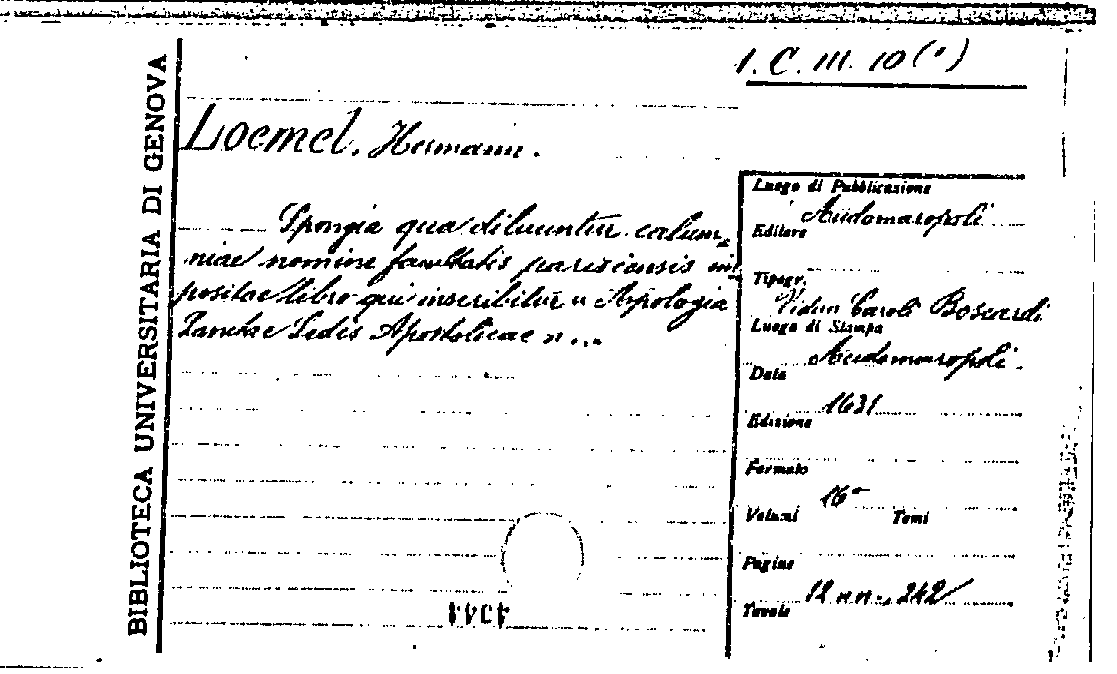 BIBLIOTECA UNIVERSITARIA DI GENOVA
1. C. III. 10 (1)
Loemel, Hermann.
Spongia qua diluuntur calum-
niae nomine facultatis parisiensis im-
positae libro qui inscribitur « Apologia
Sanctae Sedis Apostolicae » ...
Luogo di Pubblicazione
Audomaropoli
Editore
Tipogr.
Viduae Caroli Boscardi
Luogo di Stampa
Audomaropoli.
Data
1631
Edizione
Formato
16°
Volumi Tomi
Pagine
12 nn., 242
Tavole